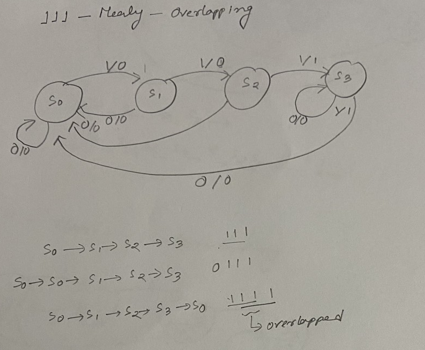 111 - Mealy - Overlapping
1/0
1
1/0
1/1
S0
S1
S2
S3
0/0
0/0
0/0
0/0
1/1
0/0
S0 → S1 → S2 → S3 111
S0 → S0 → S1 → S2 → S3 0111
S0 → S1 → S2 → S3 → S0 1111
overlapped